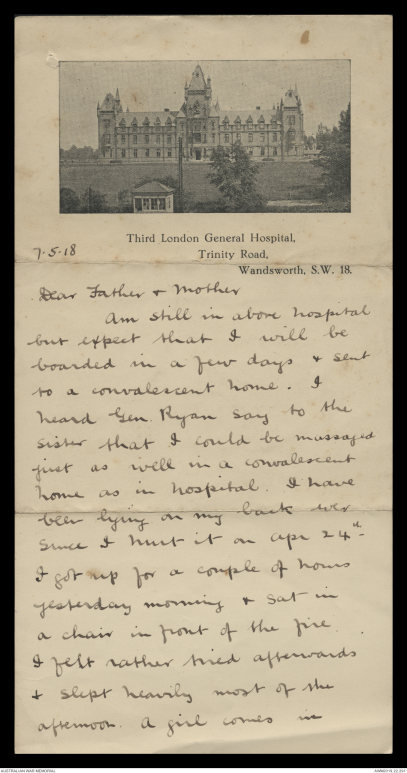 Third London General Hospital,
Trinity Road,
Wandsworth, S.W. 18.
7-5-18
Dear Father & Mother
Am still in above hospital
but expect that I will be
boarded in a few days & sent
to a convalescent home. I
heard Gen. Ryan say to the
sister that I could be massaged
just as well in a convalescent
home as in hospital. I have
been lying on my back ever
since I hurt it on Apr 24th.
I got up for a couple of hours
yesterday morning & sat in
a chair in front of the fire.
I felt rather tired afterwards
& slept heavily most of the
afternoon. A girl comes in
AUSTRALIAN WAR MEMORIAL